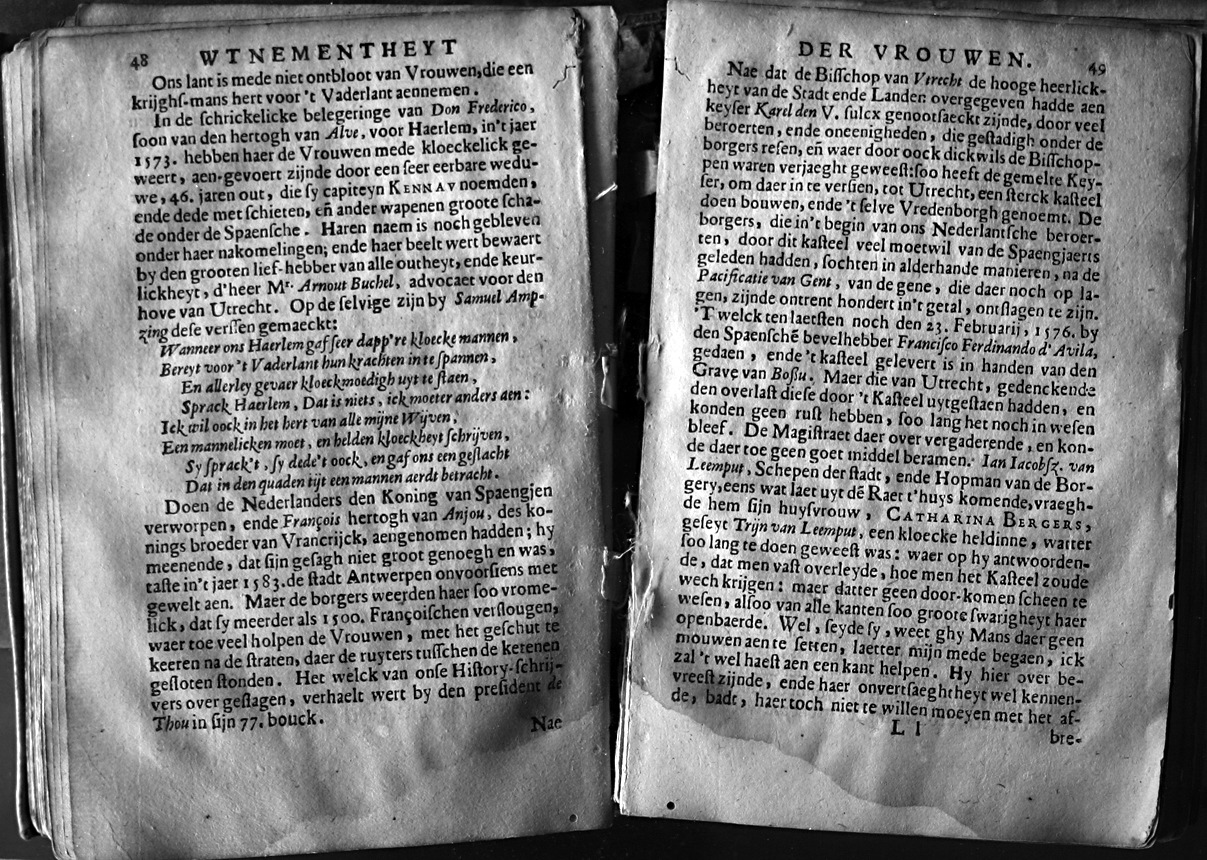 48 WTNEMENTHEYT
Ons lant is mede niet ontbloot van Vrouwen, die een
krijghſ-mans hert voor 't Vaderlant aennemen.
In de ſchrickelicke belegeringe van Don Frederico,
ſoon van den hertogh van Alve, voor Haerlem, in't jaer
1573. hebben haer de Vrouwen mede kloeckelick ge-
weert, aen-gevoert zijnde door een ſeer eerbare wedu-
we, 46. jaren out, die ſy capiteyn KENNAV noemden,
ende dede met ſchieten, eñ ander wapenen groote ſcha-
de onder de Spaenſche. Haren naem is noch gebleven
onder haer nakomelingen; ende haer beelt wert bewaert
by den grooten lief-hebber van alle outheyt, ende keur-
lickheyt, d'heer Mr. Arnout Buchel, advocaet voor den
hove van Utrecht. Op de ſelvige zijn by Samuel Amp-
zing deſe verſſen gemaeckt:
Wanneer ons Haerlem gaf ſeer dapp're kloecke mannen,
Bereyt voor 't Vaderlant hun krachten in te ſpannen,
En allerley gevaer kloeckmoedigh uyt te ſtaen,
Sprack Haerlem, Dat is niets, ick moeter anders aen:
Ick wil oock in het hert van alle mijne Wijven,
Een mannelicken moet, en helden kloeckheyt ſchrijven,
Sy ſprack't, ſy dede't oock, en gaf ons een geſlacht
Dat in den quaden tijt een mannen aerdt betracht.
Doen de Nederlanders den Koning van Spaengjen
verworpen, ende François hertogh van Anjou, des ko-
nings broeder van Vrancrijck, aengenomen hadden; hy
meenende, dat ſijn geſagh niet groot genoegh en was,
taſte in't jaer 1583. de ſtadt Antwerpen onvoorſiens met
gewelt aen. Maer de borgers weerden haer ſoo vrome-
lick, dat ſy meerder als 1500. Françoiſchen verſlougen,
waer toe veel holpen de Vrouwen, met het geſchut te
keeren na de ſtraten, daer de ruyters tuſſchen de ketenen
geſloten ſtonden. Het welck van onſe Hiſtory-ſchrij-
vers over geſlagen, verhaelt wert by den preſident de
Thou in ſijn 77. bouck.
Nae
DER VROUWEN. 49
Nae dat de Biſſchop van Vtrecht de hooge heerlick-
heyt van de Stadt ende Landen overgegeven hadde aen
keyſer Karel den V. ſulcx genootſaeckt zijnde, door veel
beroerten, ende oneenigheden, die geſtadigh onder de
borgers reſen, eñ waer door oock dickwils de Biſſchop-
pen waren verjaeght geweeſt: ſoo heeft de gemelte Key-
ſer, om daer in te verſien, tot Utrecht, een ſterck kaſteel
doen bouwen, ende 't ſelve Vredenborgh genoemt. De
borgers, die in't begin van ons Nederlantſche beroer-
ten, door dit kaſteel veel moetwil van de Spaengjaerts
geleden hadden, ſochten in alderhande manieren, na de
Pacificatie van Gent, van de gene, die daer noch op la-
gen, zijnde ontrent hondert in't getal, ontſlagen te zijn.
'T welck ten laetſten noch den 23. Februarij, 1576. by
den Spaenſchẽ bevelhebber Franciſco Ferdinando d' Avila,
gedaen, ende 't kaſteel gelevert is in handen van den
Grave van Boſſu. Maer die van Utrecht, gedenckende
den overlaſt dieſe door 't Kaſteel uytgeſtaen hadden, en
konden geen ruſt hebben, ſoo lang het noch in weſen
bleef. De Magiſtraet daer over vergaderende, en kon-
de daer toe geen goet middel beramen. Ian Iacobſz. van
Leemput, Schepen der ſtadt, ende Hopman van de Bor-
gery, eens wat laet uyt dẽ Raet t'huys komende, vraegh-
de hem ſijn huyſvrouw, CATHARINA BERGERS,
geſeyt Trijn van Leemput, een kloecke heldinne, watter
ſoo lang te doen geweeſt was: waer op hy antwoorden-
de, dat men vaſt overleyde, hoe men het Kaſteel zoude
wech krijgen: maer datter geen door-komen ſcheen te
weſen, alſoo van alle kanten ſoo groote ſwarigheyt haer
openbaerde. Wel, ſeyde ſy, weet ghy Mans daer geen
mouwen aen te ſetten, laetter mijn mede begaen, ick
zal 't wel haeſt aen een kant helpen. Hy hier over be-
vreeſt zijnde, ende haer onvertſaeghtheyt wel kennen-
de, badt, haer toch niet te willen moeyen met het af-
L l bre-